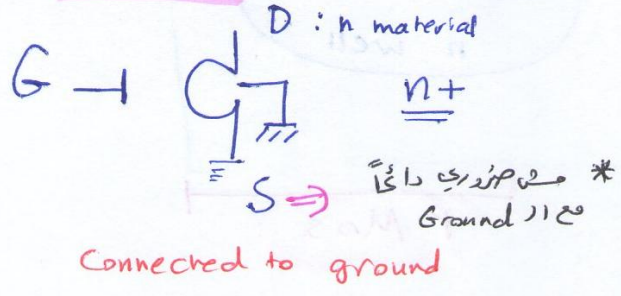 D : n material
G
n+
S ⇒
* مش ضروري دائماً
مع ال Ground
Connected to ground